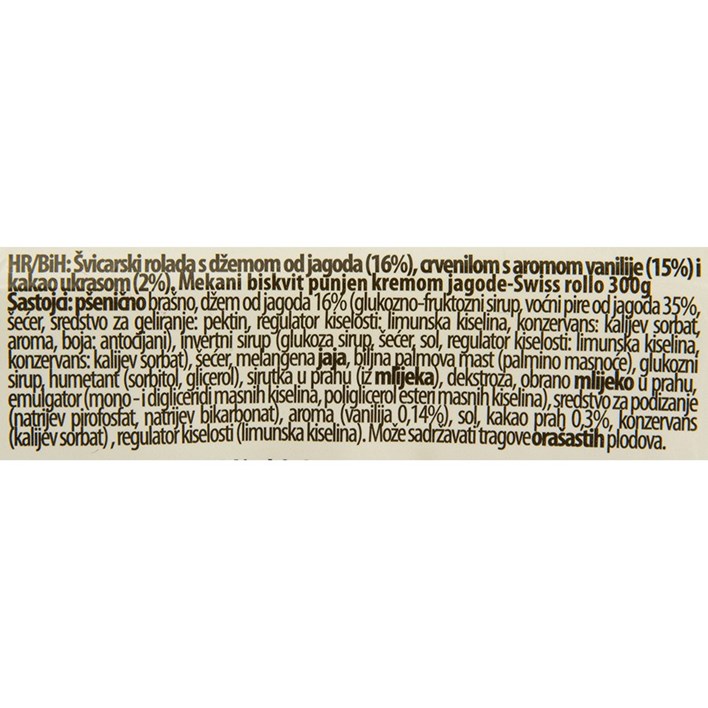 HR/BiH: Švicarski rolada s džemom od jagoda (16%), crvenilom s aromom vanilije (15%) i
kakao ukrasom (2%). Mekani biskvit punjen kremom jagode-Swiss rollo 300g
Sastojci: pšenično brašno, džem od jagoda 16% (glukozno-fruktozni sirup, voćni pire od jagoda 35%,
šećer, sredstvo za geliranje: pektin, regulator kiselosti: limunska kiselina, konzervans: kalijev sorbat,
aroma, boja: antocijani), invertni sirup (glukoza sirup, šećer, sol, regulator kiselosti: limunska kiselina,
konzervans: kalijev sorbat), šećer, melangena jaja, biljna palmova mast (palmino masnoće), glukozni
sirup, humetant (sorbitol, glicerol), sirutka u prahu (iz mlijeka), dekstroza, obrano mlijeko u prahu,
emulgator (mono - i digliceridi masnih kiselina, poliglicerol esteri masnih kiselina), sredstvo za podizanje
(natrijev pirofosfat, natrijev bikarbonat), aroma (vanilija 0,14%), sol, kakao prah 0,3%, konzervans
(kalijev sorbat) , regulator kiselosti (limunska kiselina). Može sadržavati tragove orašastih plodova.